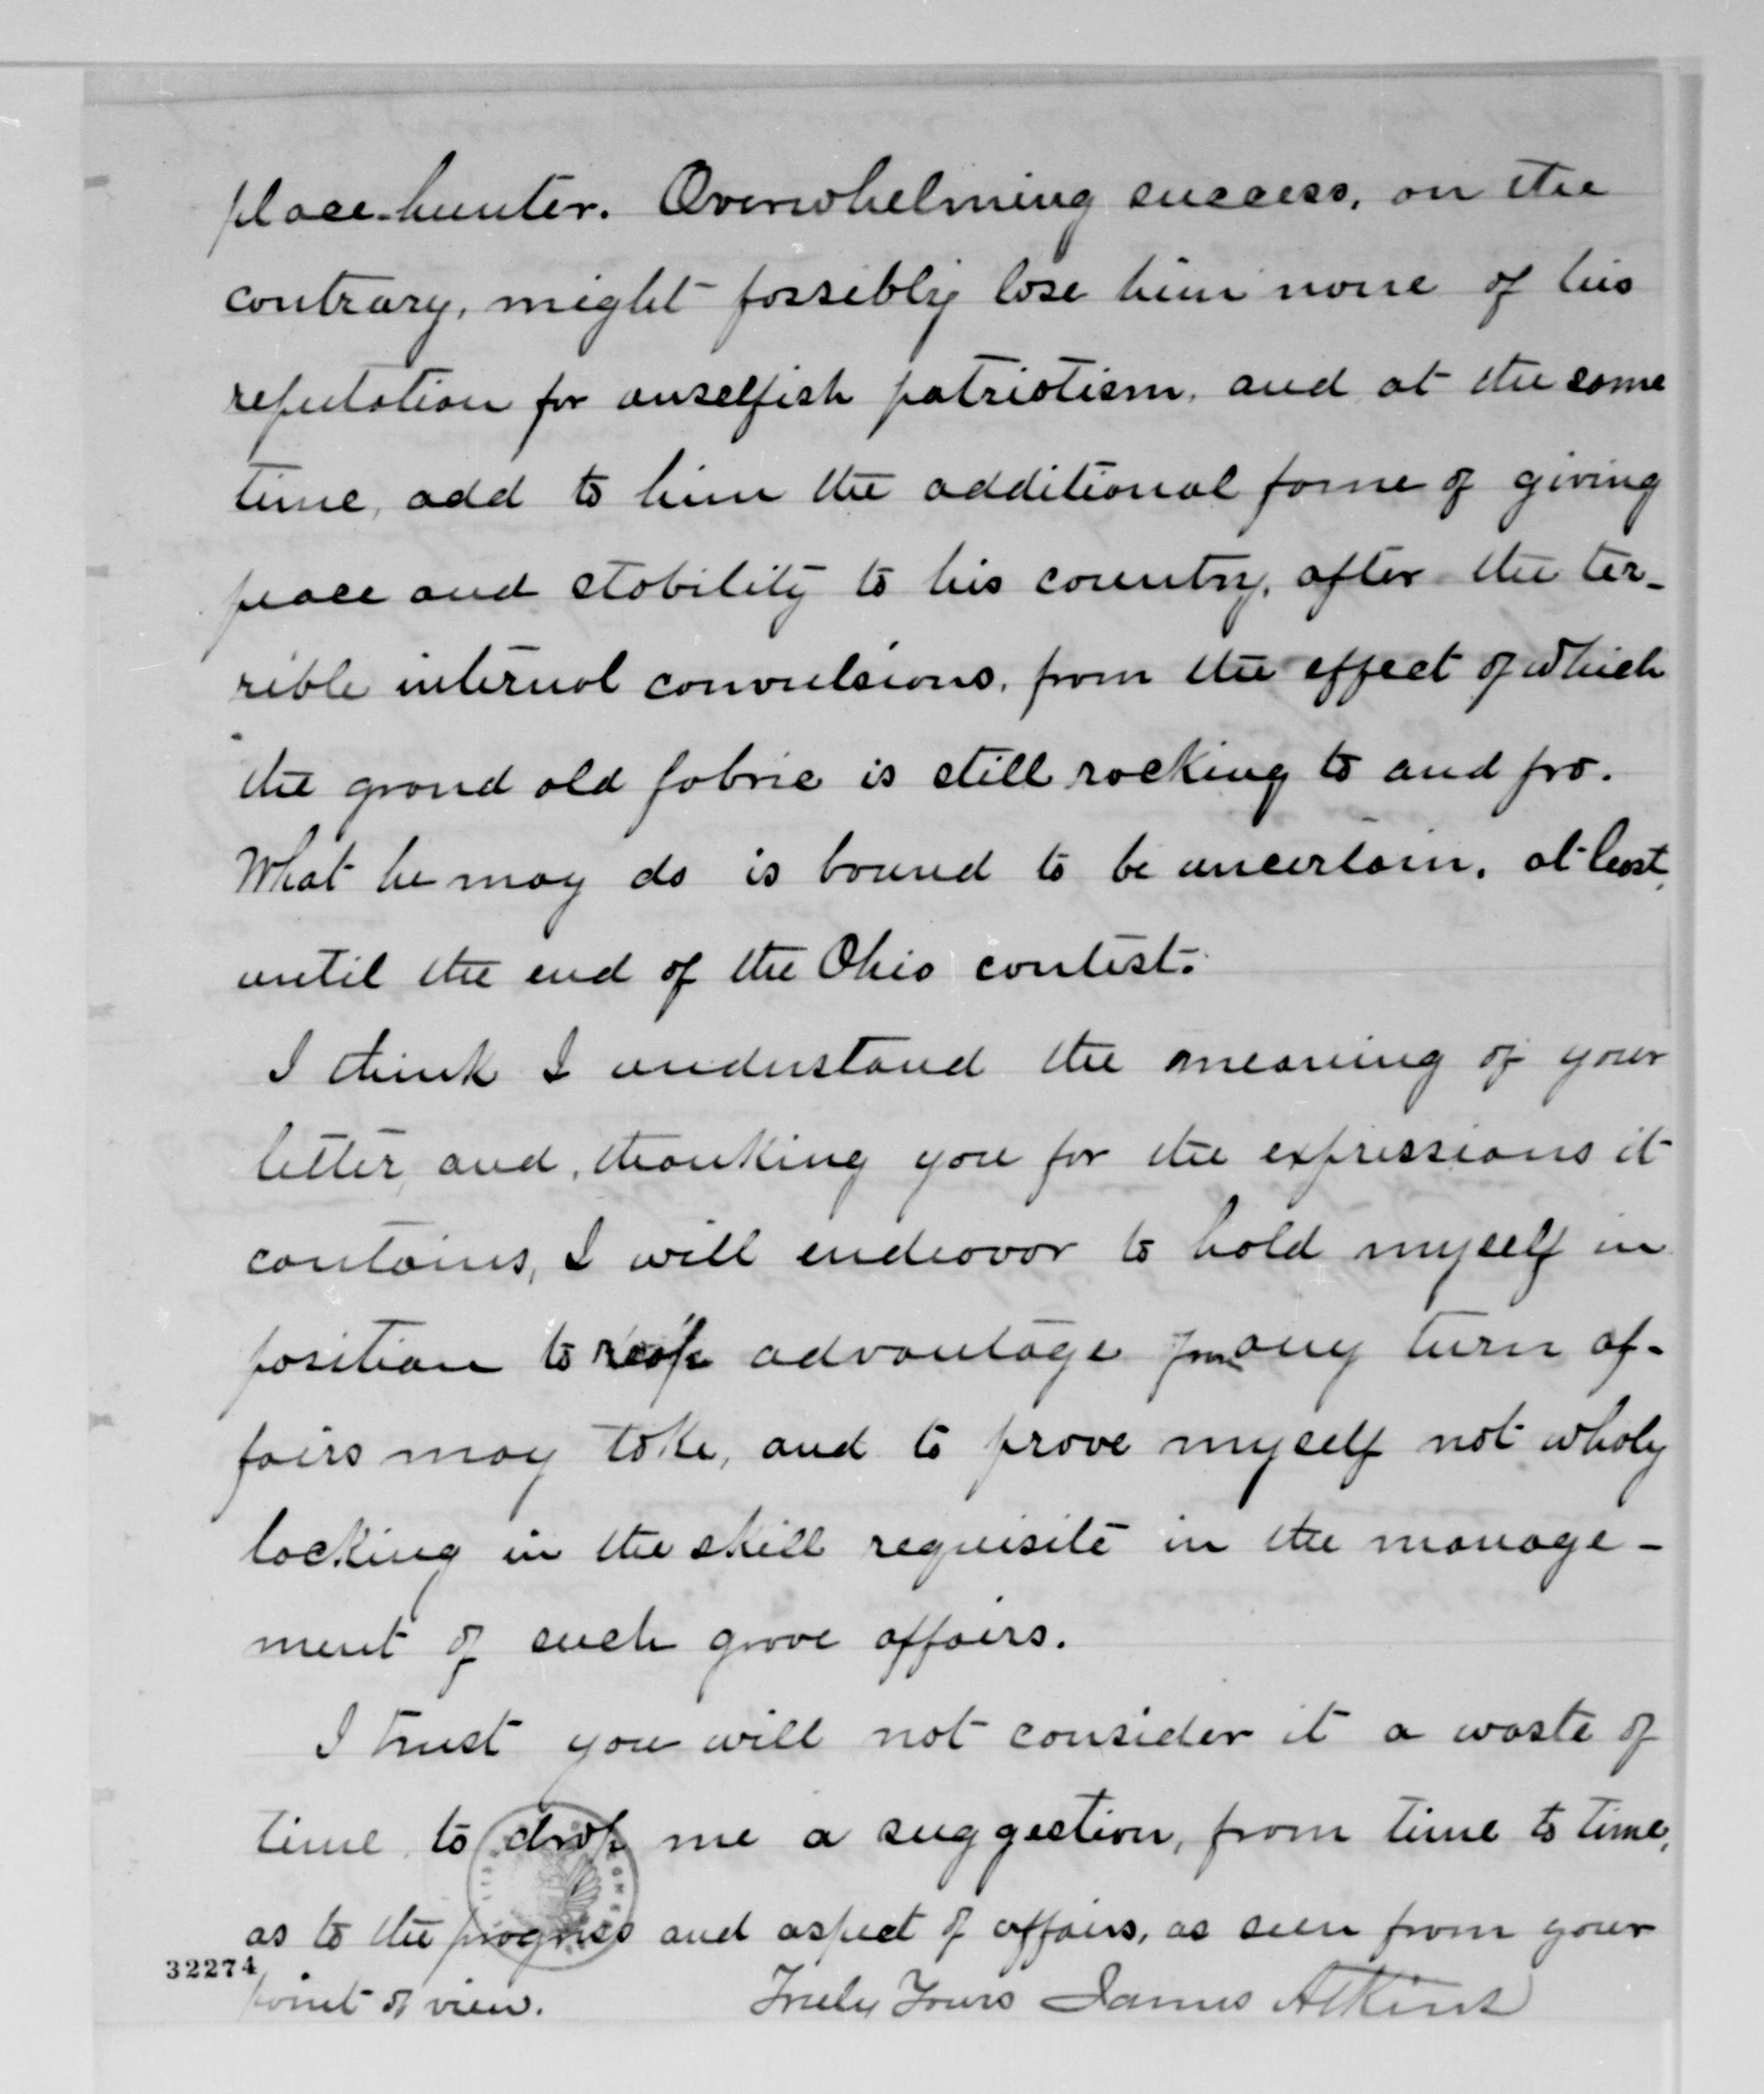 place-hunter. Overwhelming success, on the
contrary, might possibly lose him none of his
reputation for unselfish patriotism, and at the same
time, add to him the additional fame of giving
peace and stability to his country, after the ter-
rible internal convulsions, from the effect of which
the grand old fabric is still rocking to and fro.
What he may do is bound to be uncertain, at least,
until the end of the Ohio contest.
I think I understand the meaning of your
letter, and, thanking you for the expressions it
contains, I will endeavor to hold myself in
position to reap advantage from any turn af-
fairs may take, and to prove myself not wholy
lacking in the skill requisite in the manage-
ment of such grave affairs.
I trust you will not consider it a waste of
time to drop me a suggestion, from time to time,
as to the progress and aspect of affairs, as seen from your
32274
point of view. Truly Yours James Atkins